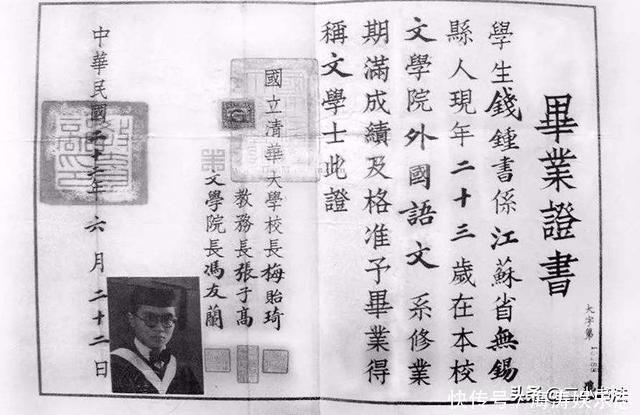 畢業證書
大字第
學生錢鍾書係江蘇省無錫
縣人現年二十三歲在本校
文學院外國語文系修業
期滿成績及格准予畢業得
稱文學士此證
國立清華大學校長梅貽琦
教務長張子高
文學院長馮友蘭
中華民國二十二年六月二十二日